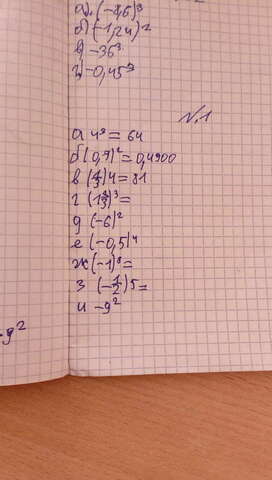 а) (-8,6)³
б) (-1,24)²
в) -36³
г) -0,45³
№1
а 4³ = 64
б (0,7)² = 0,4900
в (1/3)4 = 81
г (1 2/3)³ =
д (-6)²
е (-0,5)⁴
ж (-1)⁸ =
з (-1/2)5 =
и -9²
-9²